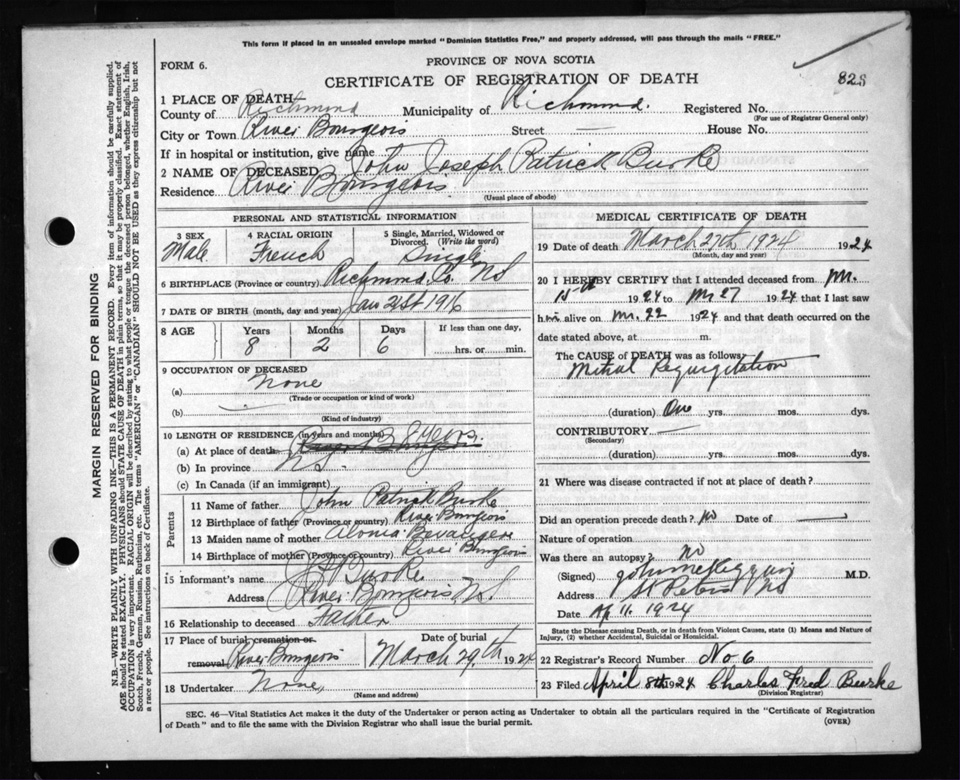 This form if placed in an unsealed envelope marked "Dominion Statistics Free," and properly addressed, will pass through the mails "FREE."
FORM 6.
PROVINCE OF NOVA SCOTIA
CERTIFICATE OF REGISTRATION OF DEATH
828
1 PLACE OF DEATH
County of Richmond Municipality of Richmond. Registered No.
(For use of Registrar General only)
City or Town River Bourgeois Street — House No.
If in hospital or institution, give name
2 NAME OF DECEASED John Joseph Patrick Burke
Residence River Bourgeois
(Usual place of abode)
PERSONAL AND STATISTICAL INFORMATION
3 SEX 4 RACIAL ORIGIN 5 Single, Married, Widowed or Divorced. (Write the word)
Male French Single
6 BIRTHPLACE (Province or country) Richmond Co. NS
7 DATE OF BIRTH (month, day and year) Jan 21st 1916
8 AGE Years Months Days If less than one day,
8 2 6 hrs. or min.
9 OCCUPATION OF DECEASED
(a) None
(Trade or occupation or kind of work)
(b)
(Kind of industry)
10 LENGTH OF RESIDENCE (in years and months)
(a) At place of death 8 years.
(b) In province NS
(c) In Canada (if an immigrant)
Parents
11 Name of father John Patrick Burke
12 Birthplace of father (Province or country) River Bourgeois
13 Maiden name of mother
14 Birthplace of mother (Province or country) River Bourgeois
15 Informant's name J P Burke
Address River Bourgeois NS.
16 Relationship to deceased Father
17 Place of burial cremation or removal River Bourgeois
Date of burial March 29th 1924
18 Undertaker None,
(Name and address)
MEDICAL CERTIFICATE OF DEATH
19 Date of death March 27th 1924 1924
(Month, day and year)
20 I HEREBY CERTIFY that I attended deceased from Mr.
15th 1924 to Mr 27 1924 that I last saw
him alive on Mr. 22 1924 and that death occurred on the
date stated above, at m.
The CAUSE of DEATH was as follows:
Mitral Regurgitation
(duration) One yrs. mos. dys.
CONTRIBUTORY —
(Secondary)
(duration) yrs. mos. dys.
21 Where was disease contracted if not at place of death?
Did an operation precede death? No Date of —
Nature of operation
Was there an autopsy? No
(Signed) M.D.
Address St Peters NS
Date Ap 11. 1924
State the Disease causing Death, or in death from Violent Causes, state (1) Means and Nature of
Injury, (2) whether Accidental, Suicidal or Homicidal.
22 Registrar's Record Number No 6
23 Filed April 8th 1924 Charles Fred Burke
(Division Registrar)
SEC. 46—Vital Statistics Act makes it the duty of the Undertaker or person acting as Undertaker to obtain all the particulars required in the "Certificate of Registration
of Death" and to file the same with the Division Registrar who shall issue the burial permit.
(OVER)
MARGIN RESERVED FOR BINDING
N.B.—WRITE PLAINLY WITH UNFADING INK—THIS IS A PERMANENT RECORD. Every item of information should be carefully supplied.
AGE should be stated EXACTLY. PHYSICIANS should STATE CAUSE OF DEATH in plain terms, so that it may be properly classified. Exact statement of
OCCUPATION is very important. RACIAL ORIGIN will be described by stating to what people or tongue the deceased person belonged, whether English, Irish,
Scotch, French, German, Russian, Ruthenian, etc. The terms "AMERICAN" or "CANADIAN" SHOULD NOT BE USED as they express citizenship but not
a race or people. See instructions on back of Certificate.